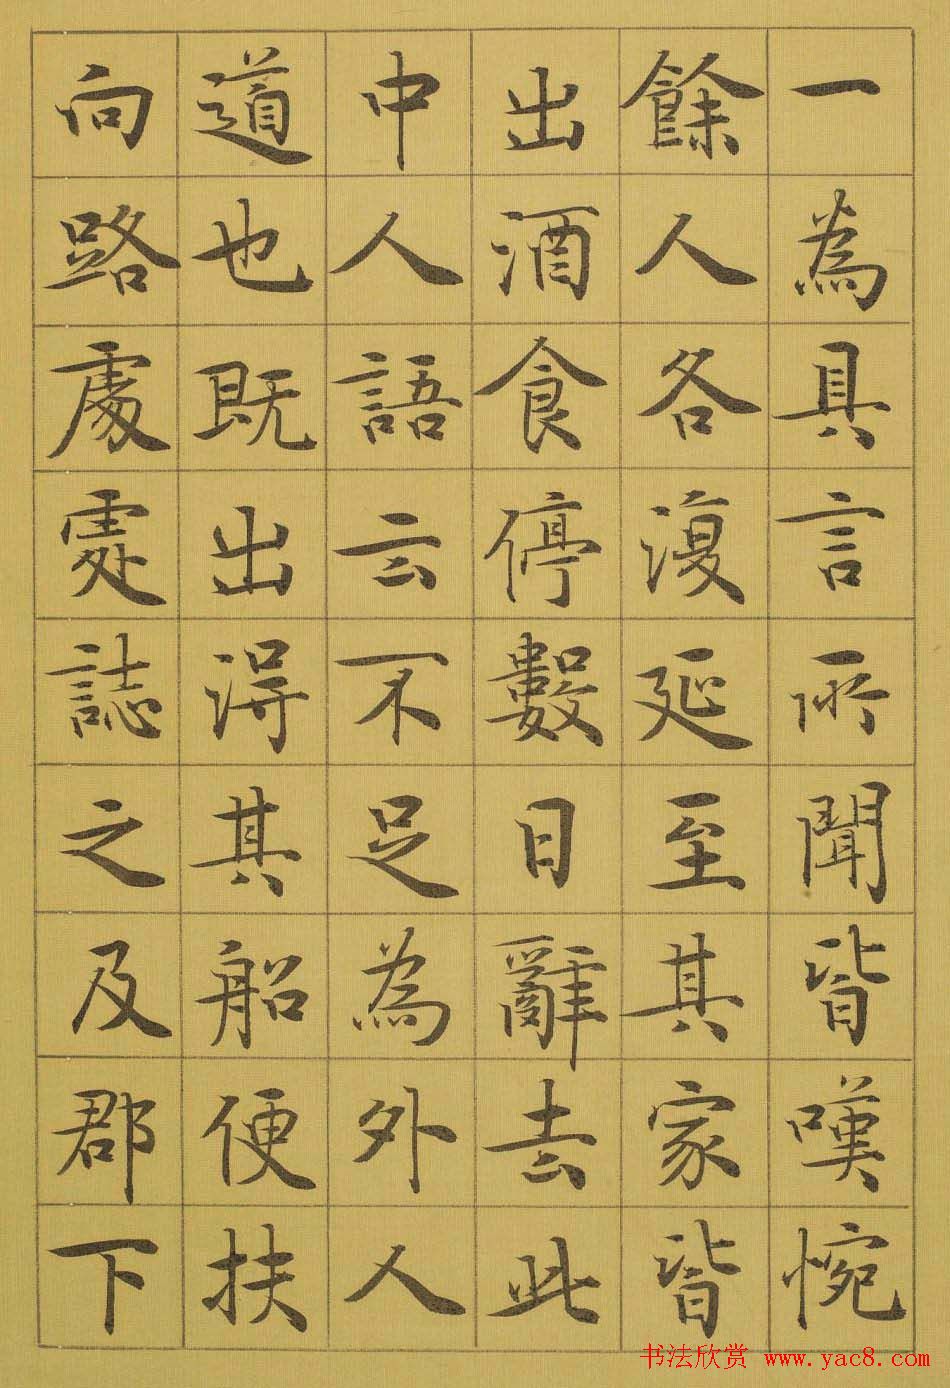 一為具言所聞皆嘆惋
餘人各復延至其家皆
出酒食停數日辭去此
中人語云不足為外人
道也既出得其船便扶
向路處處誌之及郡下
书法欣赏 www.yac8.com